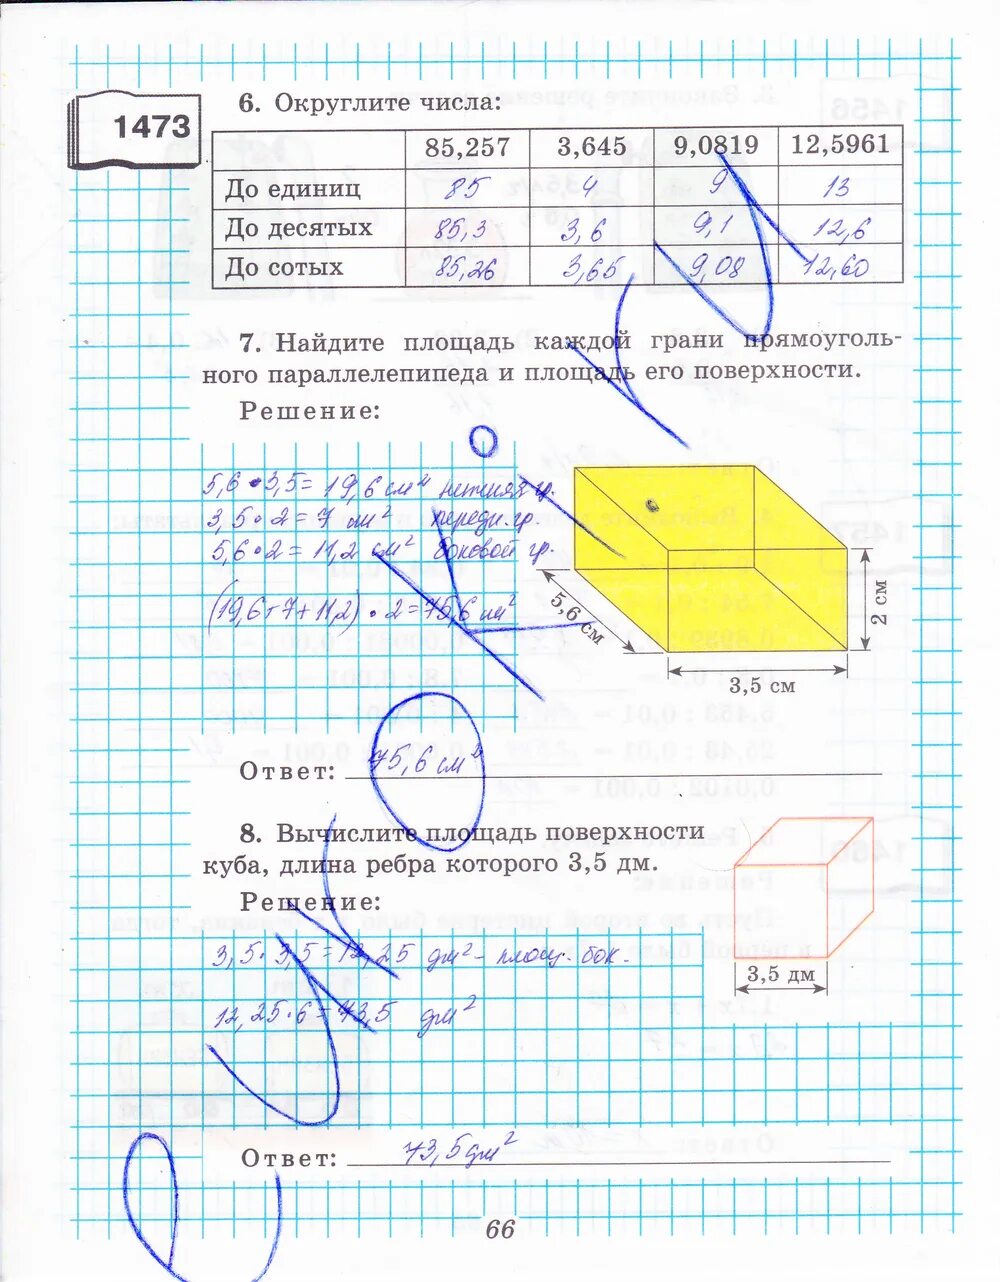 1473
6. Округлите числа:
85,257 3,645 9,0819 12,5961
До единиц 85 4 9 13
До десятых 85,3 3,6 9,1 12,6
До сотых 85,26 3,65 9,08 12,60
7. Найдите площадь каждой грани прямоуголь-
ного параллелепипеда и площадь его поверхности.
Решение:
5,6 · 3,5 = 19,6 см² нижняя гр.
3,5 · 2 = 7 см² передн. гр.
5,6 · 2 = 11,2 см² боковой гр.
(19,6+7+11,2) · 2 = 75,6 см²
5,6 см
2 см
3,5 см
Ответ: 75,6 см²
8. Вычислите площадь поверхности
куба, длина ребра которого 3,5 дм.
Решение:
3,5 · 3,5 = 12,25 дм² - площ. бок.
12,25 · 6 = 73,5 дм²
3,5 дм
Ответ: 73,5 дм²
66